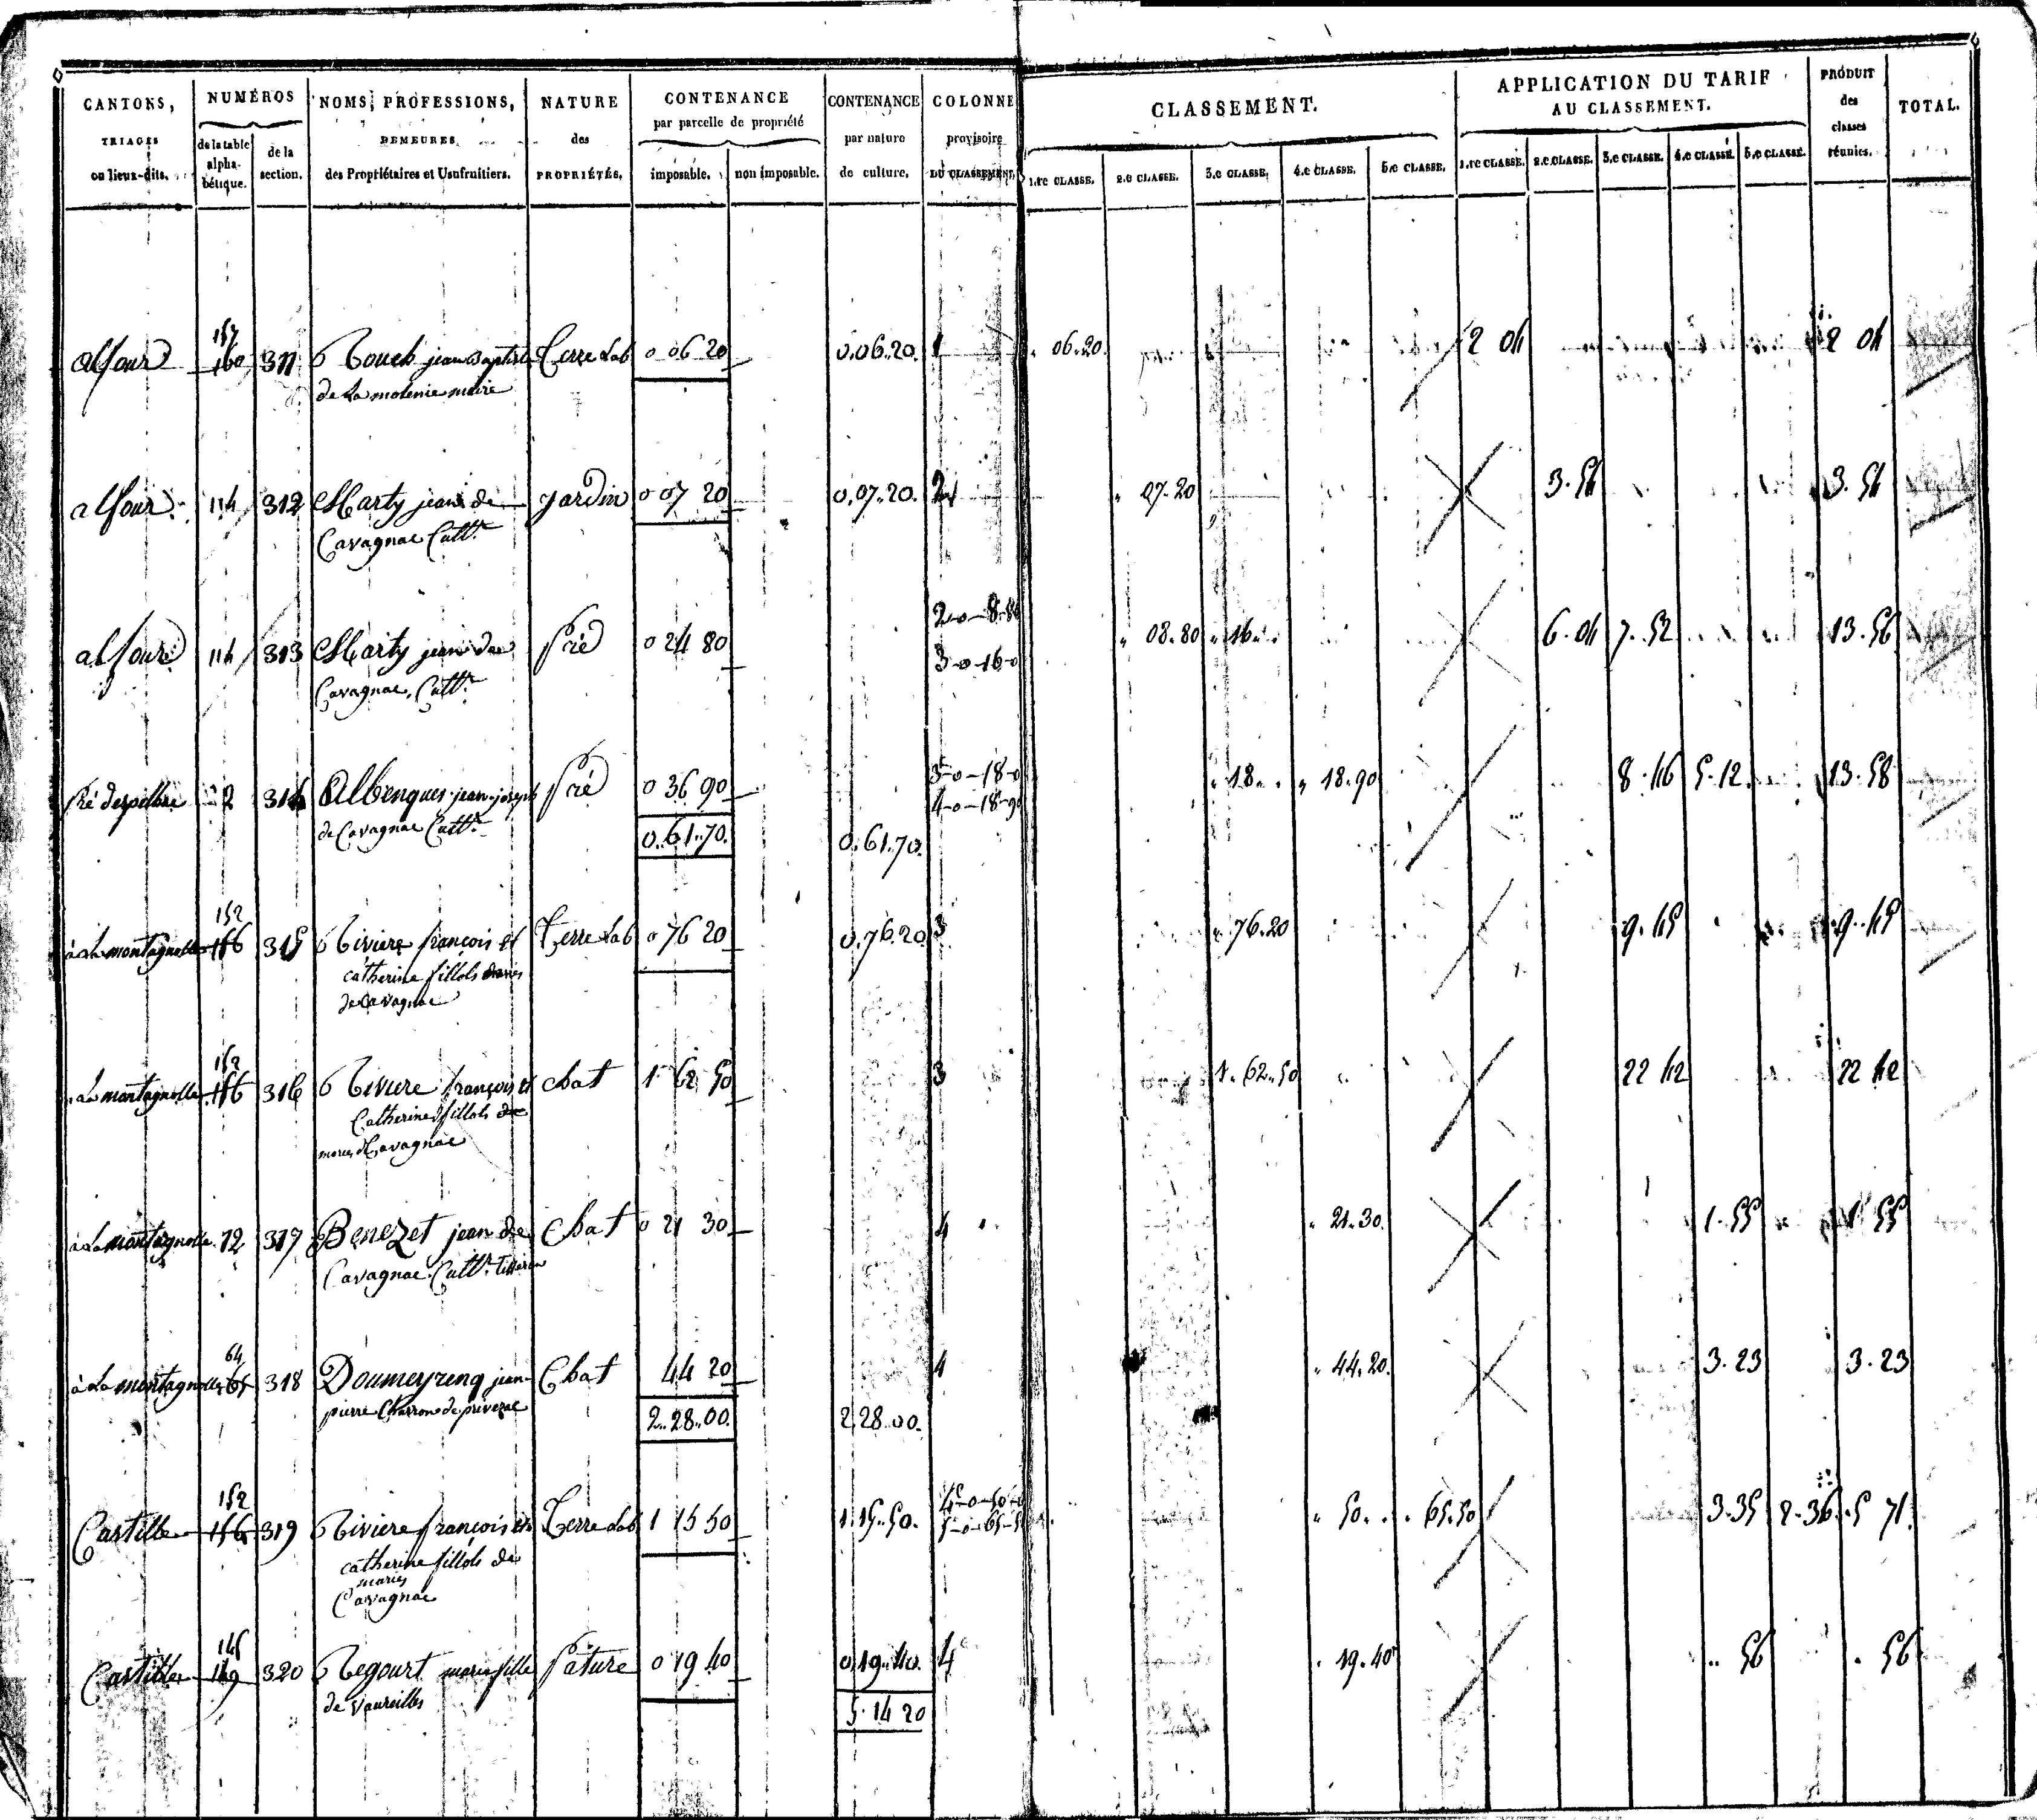 CANTONS, TRIAGES ou lieux-dits. NUMÉROS de la table alphabétique. de la section. NOMS, PROFESSIONS, DEMEURES des Propriétaires et Usufruitiers. NATURE des PROPRIÉTÉS. CONTENANCE par parcelle de propriété imposable. non imposable. CONTENANCE par nature de culture. COLONNE provisoire DU CLASSEMENT. CLASSEMENT. 1.re CLASSE. 2.e CLASSE. 3.e CLASSE. 4.e CLASSE. 5.e CLASSE. APPLICATION DU TARIF AU CLASSEMENT. 1.re CLASSE. 2.e CLASSE. 3.e CLASSE. 4.e CLASSE. 5.e CLASSE. PRODUIT des classes réunies. TOTAL.
157
alfour 160 311 Rouch jean Baptiste Terre Lab 0 06 20 0.06.20. 1 06.20 2 04 2 04
de la molenie maire
alfour 114 312 Marty jean de jardin 0 07 20 0.07.20. 2 07.20 3.54 3.54
Cavagnac Cultr
2-0-8-80
alfour 114 313 Marty jean de Pré 0 24 80 08.80 16 6.04 7.52 13.56
3-0-16-0
Cavagnac, Cultr
3-0-18-0
Pré despelbre 2 314 Albenques jean joseph Pré 0 36 90 18 18.90 8.46 5.12 13.58
4-0-18-90
de Cavagnac Cultr 0.61.70. 0.61.70.
152
à la montagnolle 156 315 Riviere françois et Terre Lab 0 76 20 0.76.20 3 76.20 9.45 9.45
catherine fillols mariés
de Cavagnac
152
à la montagnolle 156 316 Riviere françois et chat 1 62 50 3 1.62.50 22 42 22 42
Catherine fillols de
mariés Cavagnac
à la montagnolle 12 317 Benezet jean de Chat 0 21 30 4 21.30. 1.55 1 55
Cavagnac Cultr Tisseran
64
à la montagnolle 65 318 Doumeyrenq jean Chat 44 20 4 44.20. 3.23 3.23
pierre Charron de privezac 2.28.00. 2.28.00.
152
Castille 156 319 Riviere françois et Terre Lab 1 15 50 1.15.50. 4-0-50-0 50 65.50 3.35 2.36 5 71.
5-0-65-50
catherine fillols de
mariés
Cavagnac
145
Castille 149 320 Regourt marie fille Pâture 0 19 40 0.19.40. 4 19.40 56 56
de Vaureilles
5.14 20